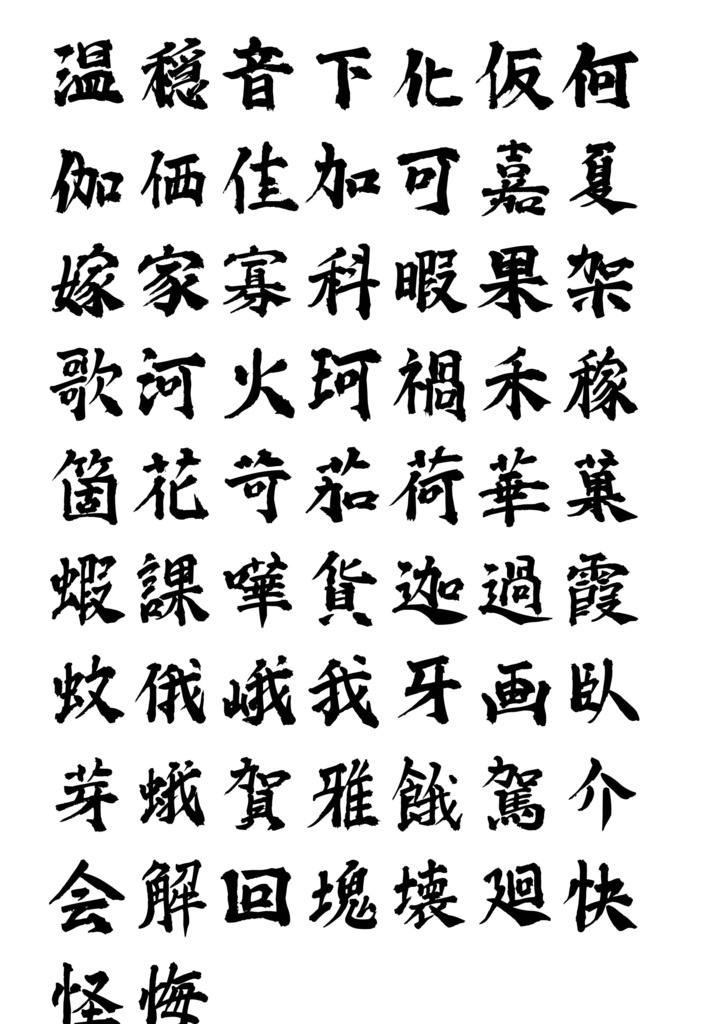 温穏音下化仮何
伽価佳加可嘉夏
嫁家寡科暇果架
歌河火珂禍禾稼
箇花苛茄荷華菓
蝦課嘩貨迦過霞
蚊俄峨我牙画臥
芽蛾賀雅餓駕介
会解回塊壊廻快
怪悔